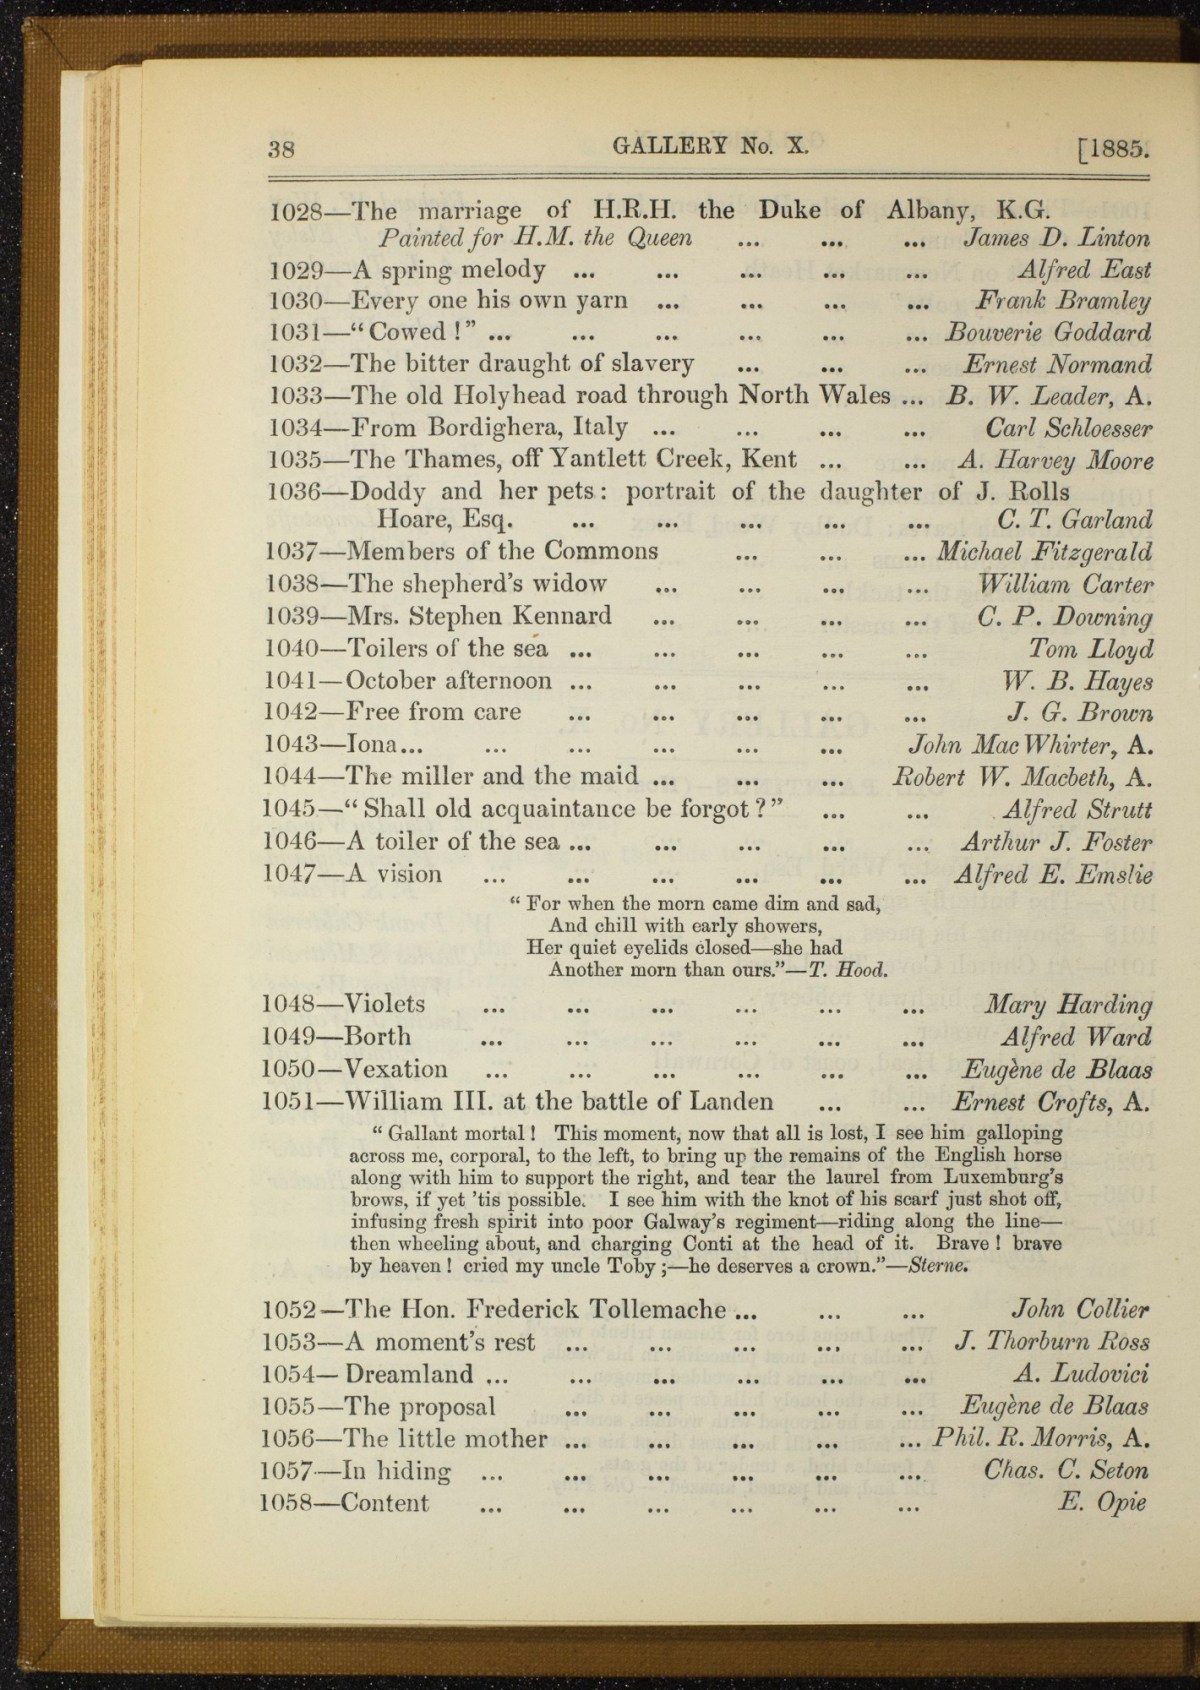 38 GALLERY No. X. [1885.
1028—The marriage of H.R.H. the Duke of Albany, K.G.
Painted for H.M. the Queen ... ... ... James D. Linton
1029—A spring melody ... ... ... ... ... Alfred East
1030—Every one his own yarn ... ... ... ... Frank Bramley
1031—“Cowed!” ... ... ... ... ... ... Bouverie Goddard
1032—The bitter draught of slavery ... ... ... Ernest Normand
1033—The old Holyhead road through North Wales ... B. W. Leader, A.
1034—From Bordighera, Italy ... ... ... ... Carl Schloesser
1035—The Thames, off Yantlett Creek, Kent ... ... A. Harvey Moore
1036—Doddy and her pets: portrait of the daughter of J. Rolls
Hoare, Esq. ... ... ... ... ... C. T. Garland
1037—Members of the Commons ... ... ... Michael Fitzgerald
1038—The shepherd's widow ... ... ... ... William Carter
1039—Mrs. Stephen Kennard ... ... ... ... C. P. Downing
1040—Toilers of the sea ... ... ... ... ... Tom Lloyd
1041—October afternoon ... ... ... ... ... W. B. Hayes
1042—Free from care ... ... ... ... ... J. G. Brown
1043—Iona... ... ... ... ... ... John MacWhirter, A.
1044—The miller and the maid ... ... ... Robert W. Macbeth, A.
1045—“Shall old acquaintance be forgot?” ... ... Alfred Strutt
1046—A toiler of the sea ... ... ... ... ... Arthur J. Foster
1047—A vision ... ... ... ... ... ... Alfred E. Emslie
“For when the morn came dim and sad,
And chill with early showers,
Her quiet eyelids closed—she had
Another morn than ours.”—T. Hood.
1048—Violets ... ... ... ... ... ... Mary Harding
1049—Borth ... ... ... ... ... ... Alfred Ward
1050—Vexation ... ... ... ... ... ... Eugène de Blaas
1051—William III. at the battle of Landen ... ... Ernest Crofts, A.
“Gallant mortal! This moment, now that all is lost, I see him galloping
across me, corporal, to the left, to bring up the remains of the English horse
along with him to support the right, and tear the laurel from Luxemburg's
brows, if yet 'tis possible. I see him with the knot of his scarf just shot off,
infusing fresh spirit into poor Galway's regiment—riding along the line—
then wheeling about, and charging Conti at the head of it. Brave! brave
by heaven! cried my uncle Toby;—he deserves a crown.”—Sterne.
1052—The Hon. Frederick Tollemache ... ... ... John Collier
1053—A moment's rest ... ... ... ... ... J. Thorburn Ross
1054—Dreamland ... ... ... ... ... ... A. Ludovici
1055—The proposal ... ... ... ... ... Eugène de Blaas
1056—The little mother ... ... ... ... ... Phil. R. Morris, A.
1057—In hiding ... ... ... ... ... ... Chas. C. Seton
1058—Content ... ... ... ... ... ... E. Opie